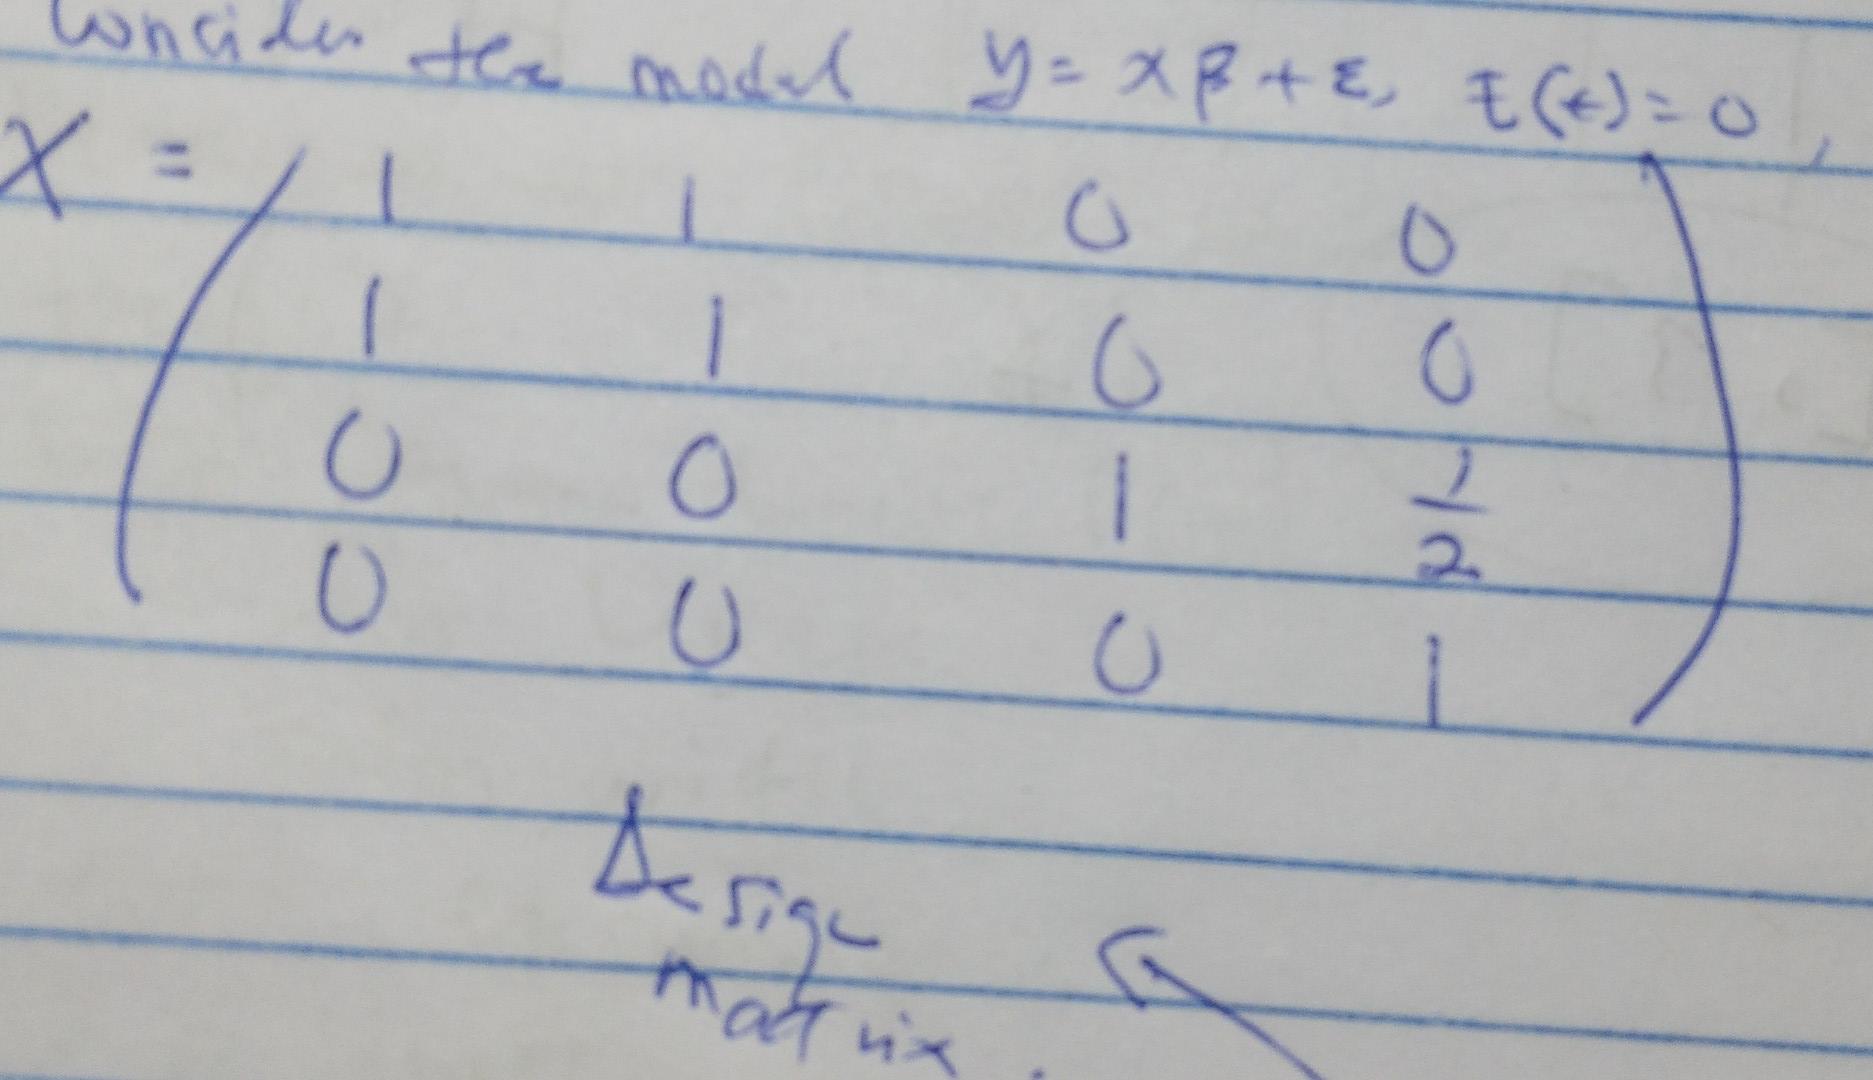 Consider the model y = xβ + ε, E(ε) = 0,
X = ( 1 1 0 0
1 1 0 0
0 0 1 1/2
0 0 0 1 )
Design
matrix.